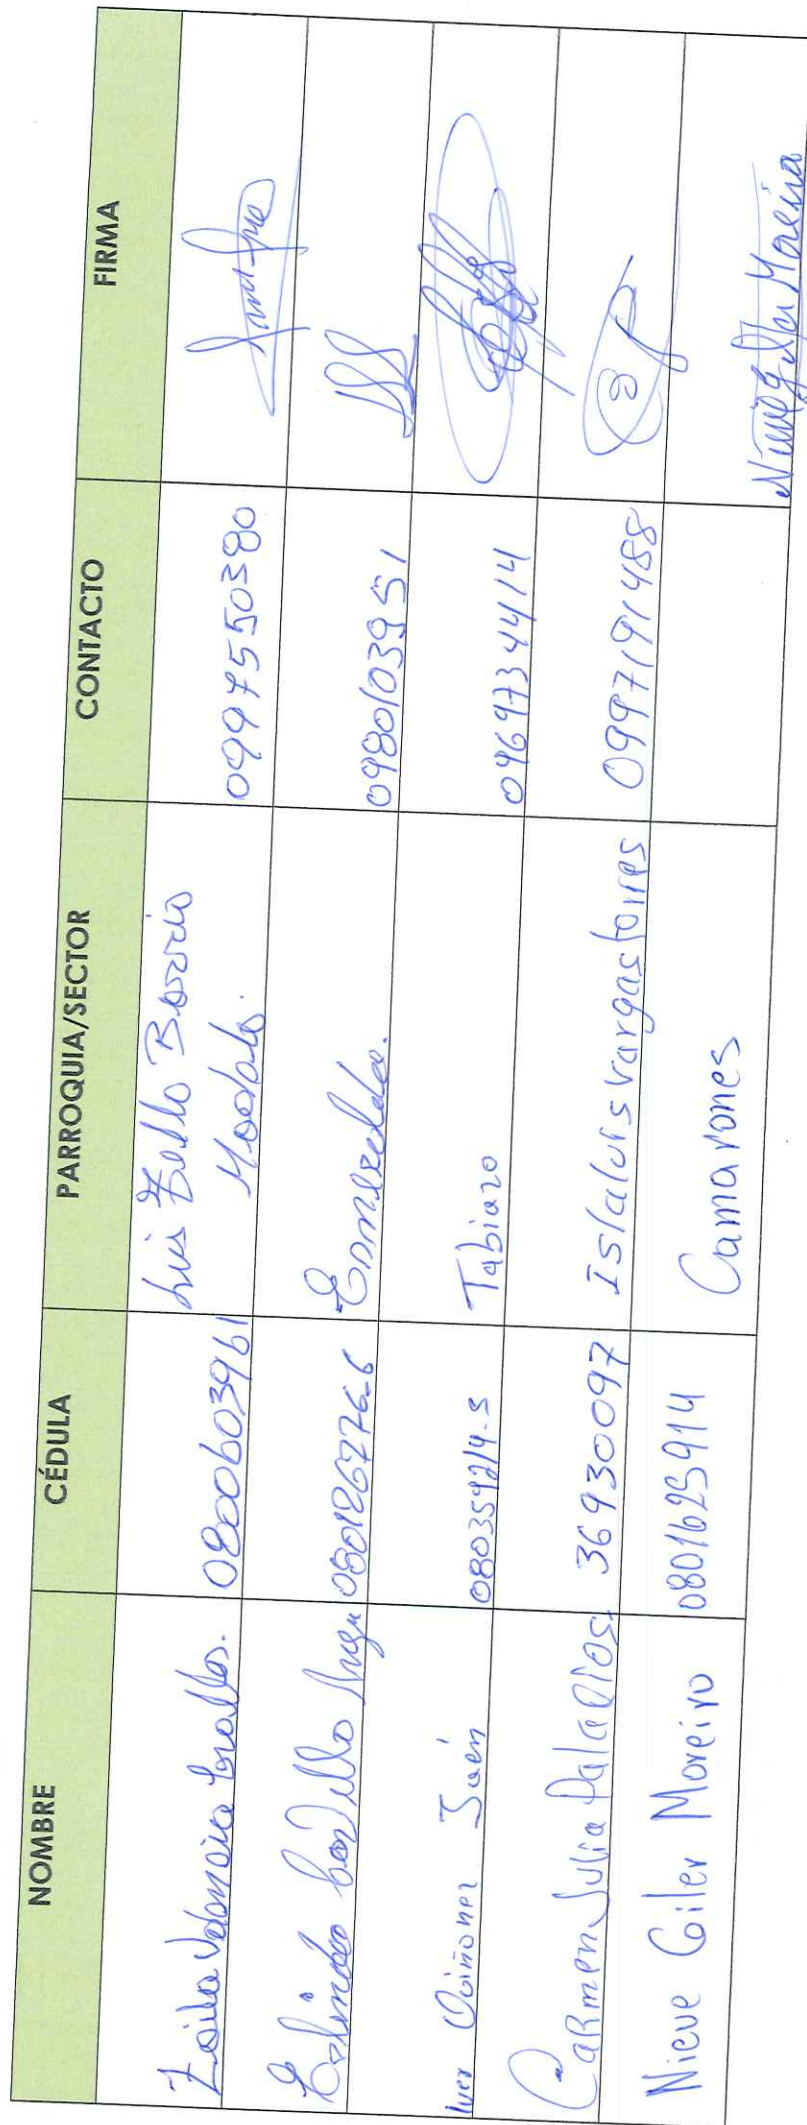 NOMBRE CÉDULA PARROQUIA/SECTOR CONTACTO FIRMA
Zoila Valencia 0800603961 Luis Tello Barrio 0997550380
Modelo.
Castillo 080126276-6 Esmeraldas. 0980103951
Quiñonez Juén 080359214-3 Tabiazo 0969734414
Carmen Julia Palacios. 36930097 Isla luis vargas torres 0997191488
Nieve Giler Moreira 0801625914 Camarones Moreira